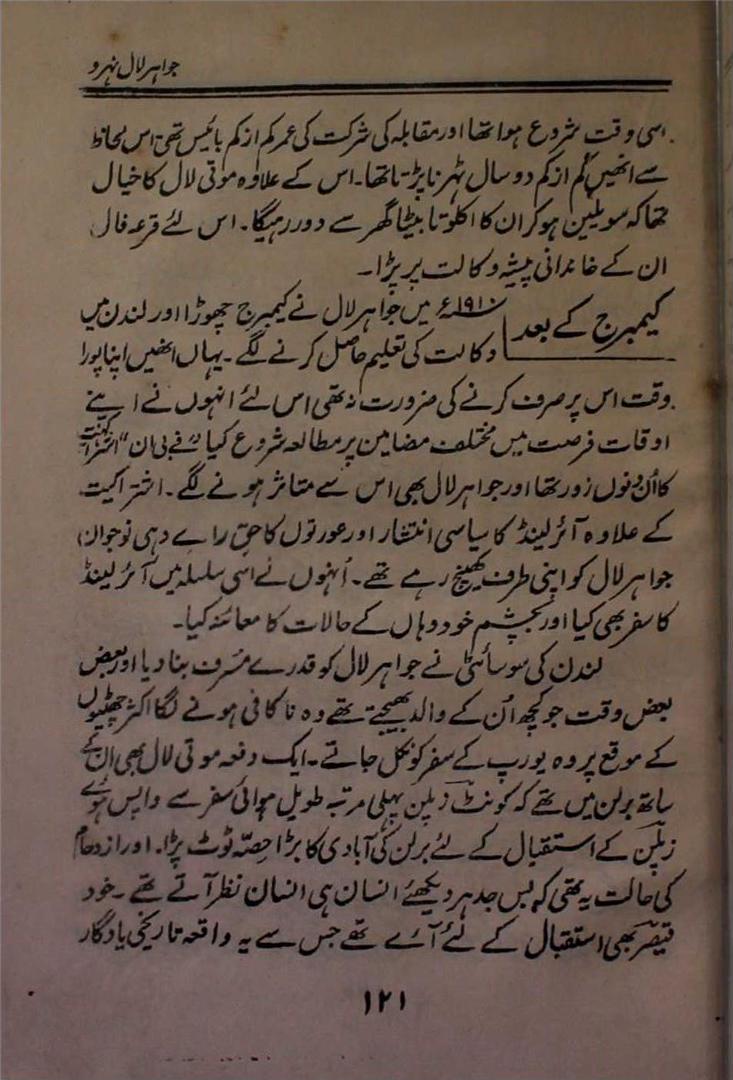 جواہر لال نہرو
اسی وقت شروع ہوا تھا اور مقابلہ کی شرکت کی عمر کم از کم بائیس تھی اس لحاظ
سے انھیں کم از کم دو سال ٹہرنا پڑتا تھا۔ اس کے علاوہ موتی لال کا خیال
تھا کہ سویلین ہو کر ان کا اکلوتا بیٹا گھر سے دور رہیگا۔ اس لئے قرعہ فال
ان کے خاندانی پیشہ وکالت پر پڑا۔
کیمبرج کے بعد
۱۹۱۰ء میں جواہر لال نے کیمبرج چھوڑا اور لندن میں
وکالت کی تعلیم حاصل کرنے لگے۔ یہاں انھیں اپنا پورا
وقت اس پر صرف کرنے کی ضرورت نہ تھی اس لئے انہوں نے اپنے
اوقات فرصت میں مختلف مضامین پر مطالعہ شروع کیا فے بی ان "اشتراکیت"
کا اُن دنوں زور تھا اور جواہر لال بھی اس سے متاثر ہونے لگے۔ اشتراکیت
کے علاوہ آئرلینڈ کا سیاسی انتشار اور عورتوں کا حق راے دہی نوجوان
جواہر لال کو اپنی طرف کھینچ رہے تھے۔ اُنہوں نے اسی سلسلہ میں آئرلینڈ
کا سفر بھی کیا اور بچشم خود وہاں کے حالات کا معائنہ کیا۔
لندن کی سوسائٹی نے جواہر لال کو قدرے مسُرف بنا دیا اور بعض
بعض وقت جو کچھ اُن کے والد بھیجتے تھے وہ ناکافی ہونے لگا اکثر چھٹیوں
کے موقع پر وہ یورپ کے سفر کو نکل جاتے۔ ایک دفعہ موتی لال بھی ان کے
ساتھ برلن میں تھے کہ کونٹ زپلن پہلی مرتبہ طویل ہوائی سفر سے واپس ہوے
زپلن کے استقبال کے لئے برلن کی آبادی کا بڑا حصّہ ٹوٹ پڑا۔ اور ازدحام
کی حالت یہ تھی کہ بس جدہر دیکھئے انسان ہی انسان نظر آتے تھے۔ خود
قیصر بھی استقبال کے لئے آئے تھے جس سے یہ واقعہ تاریخی یادگار
۱۲۱